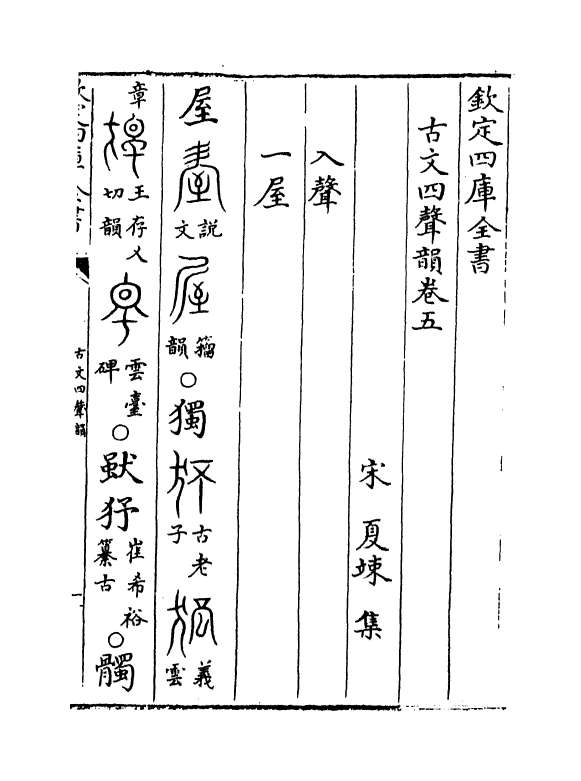 欽定四庫全書
古文四聲韻卷五
宋 夏竦 集
入聲
一屋
屋 說文 籀韻 ○ 獨 古老子 義雲
章 王存乂切韻 雲臺碑 ○ 㹳 崔希裕纂古 ○ 髑
古文四聲韻